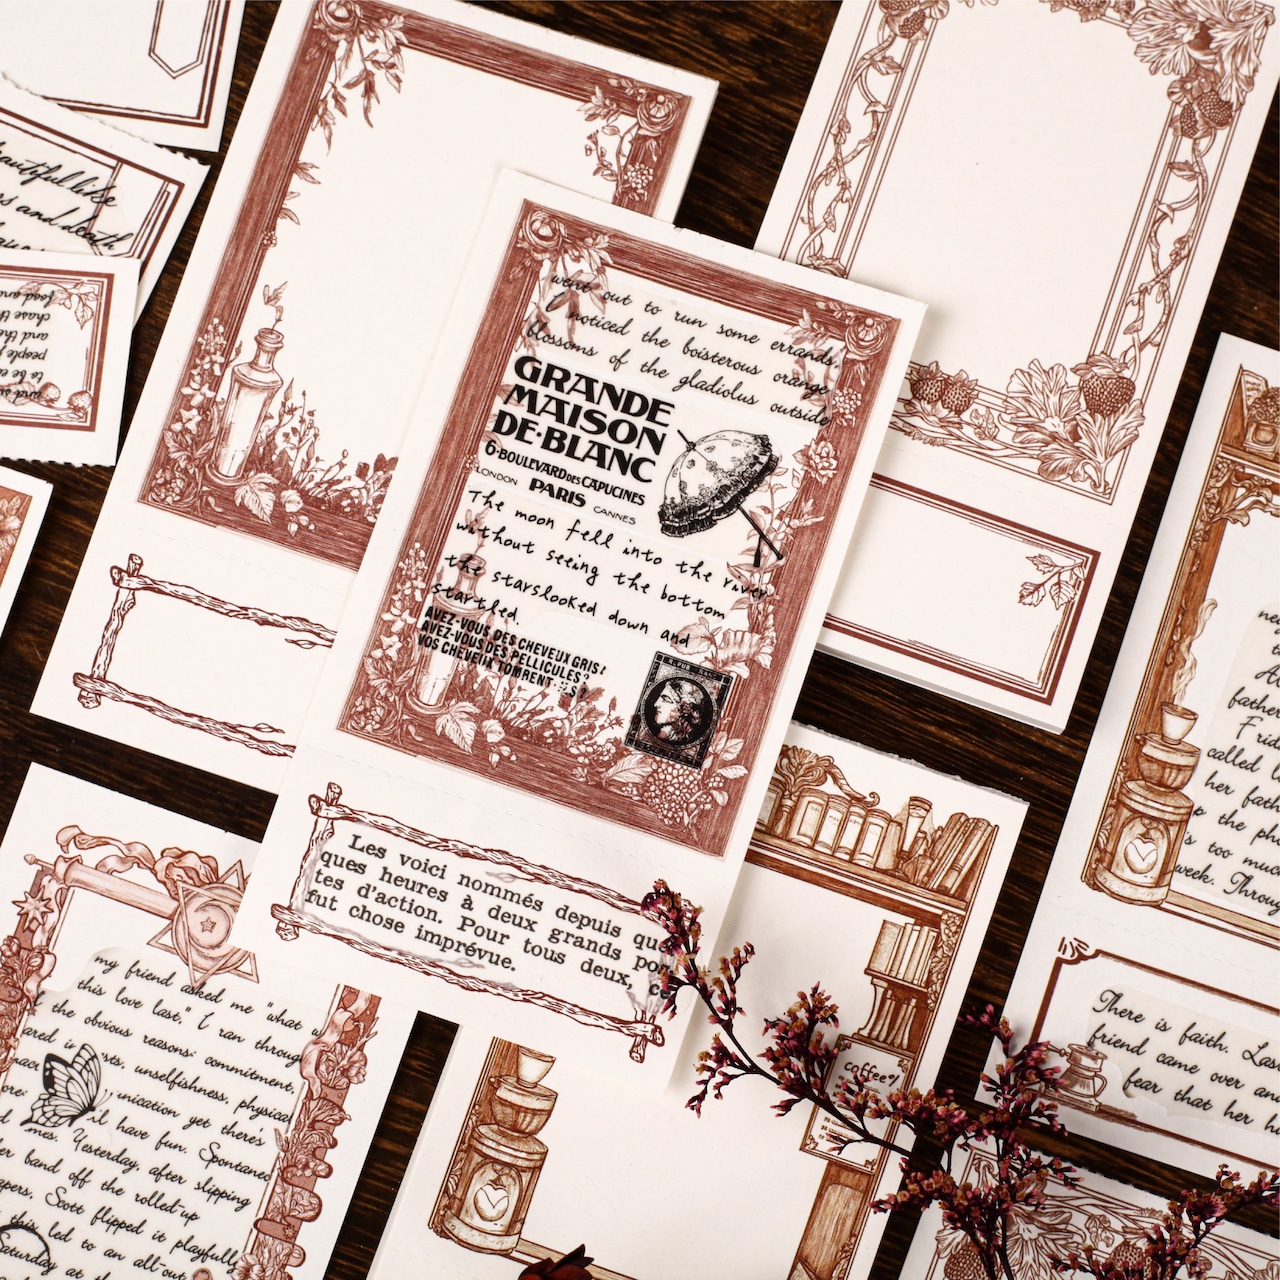 beautiful like
and death
food and
chase the
and the
people
to be
went out to run some errands,
I noticed the boisterous orange
blossoms of the gladiolus outside
GRANDE
MAISON
DE·BLANC
6·BOULEVARD DES CAPUCINES
LONDON PARIS CANNES
The moon fell into the river
without seeing the bottom
the starslooked down and
startled.
AVEZ-VOUS DES CHEVEUX GRIS?
AVEZ-VOUS DES PELLICULES?
VOS CHEVEUX TOMBENT-ILS?
Les voici nommés depuis quel
ques heures à deux grands pos
tes d'action. Pour tous deux, ce
fut chose imprévue.
my friend asked me "what
this love last." I ran throug
the obvious reasons: commitment,
unselfishness, physical
unication yet there's
'll have fun. Spontaneo
mes. Yesterday, after slipping
er band off the rolled-up
apers, Scott flipped it playfully
this led to an all-out
Saturday at the
coffee
father
Frid
called
her fath
up the pho
's too much
week. Throug
There is faith. Las
friend came over an
fear that her h